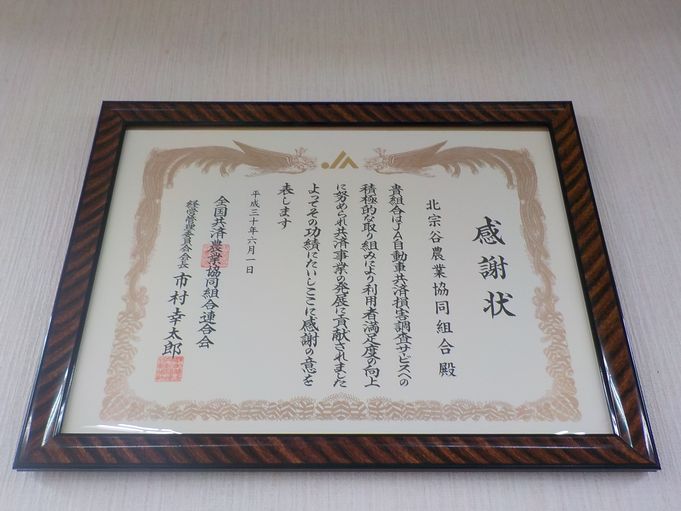 感謝状
北宗谷農業協同組合殿
貴組合はJA自動車共済損害調査サービスへの
積極的な取り組みにより利用者満足度の向上
に努められ共済事業の発展に貢献されました
よってその功績にたいしここに感謝の意を
表します
平成三十年六月一日
全国共済農業協同組合連合会
経営管理委員会会長 市村幸太郎